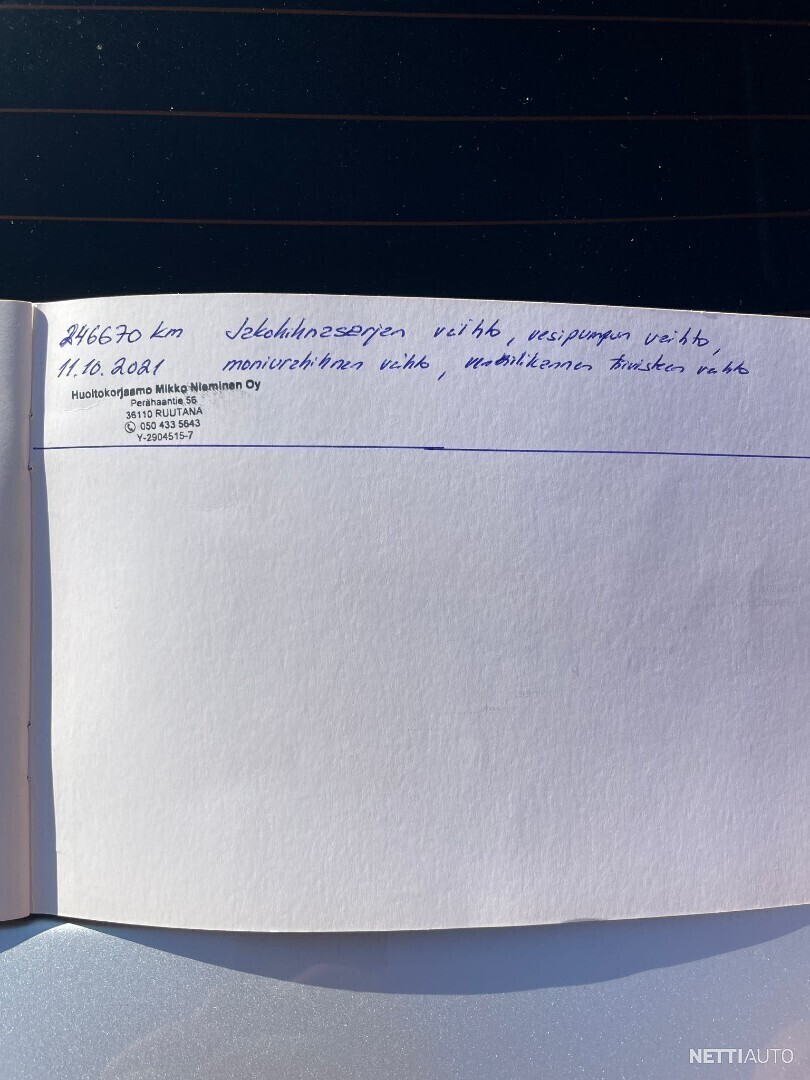 246670 km Jakohihnasarjan vaihto, vesipumpun vaihto,
11.10.2021 moniurahihnan vaihto, venttiilikannen tiivisteen vaihto
Huoltokorjaamo Mikko Nieminen Oy
Perähaantie 56
36110 RUUTANA
050 433 5643
Y-2904515-7
NETTIAUTO